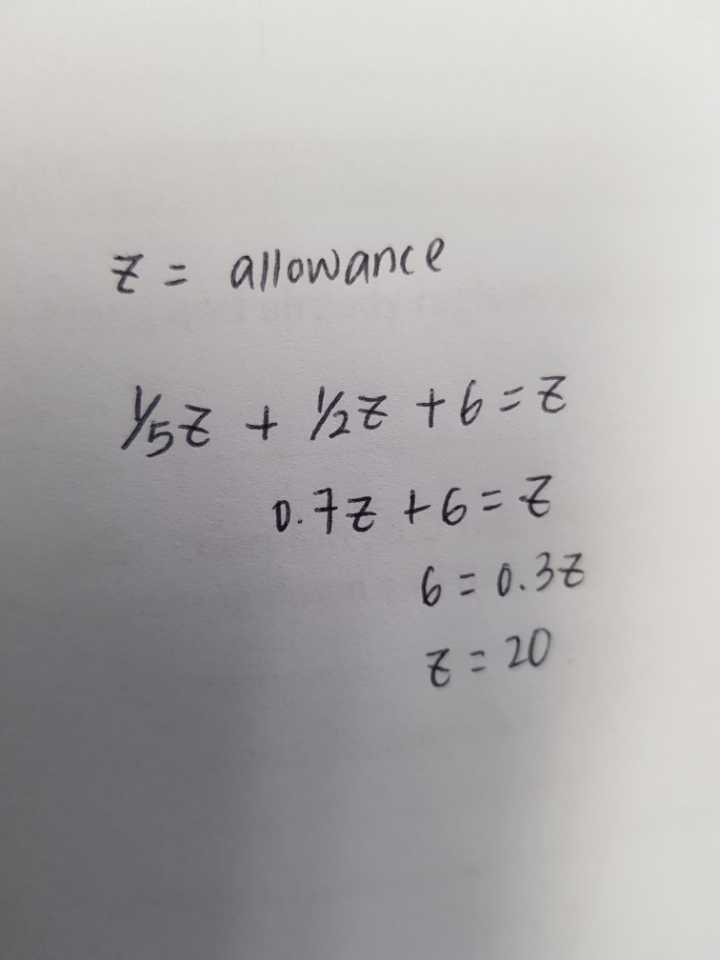 z = allowance
1/5z + 1/2z + 6 = z
0.7z + 6 = z
6 = 0.3z
z = 20